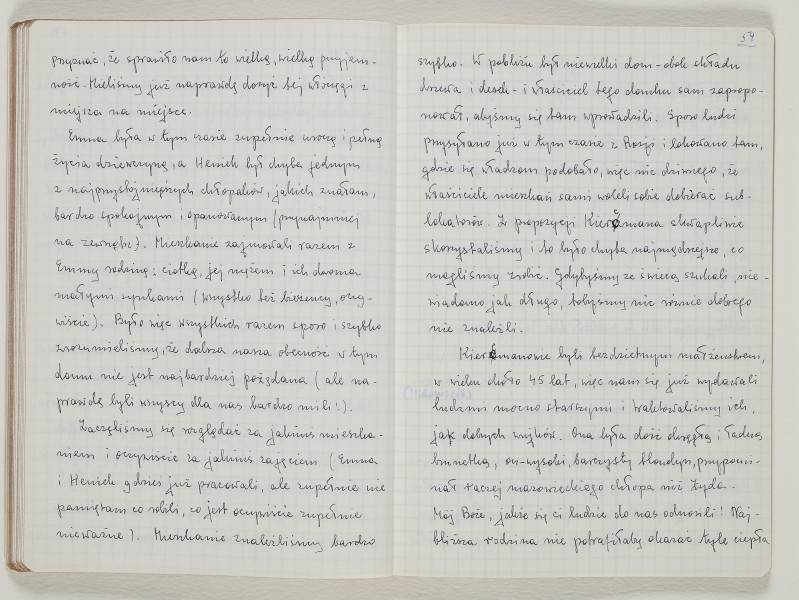 przyznać, że sprawiło nam to wielką, wielką przyjem-
ność. Mieliśmy już naprawdę dosyć tej włóczęgi z
miejsca na miejsce.
Emma była w tym czasie zupełnie uroczą i pełną
życia dziewczyną, a Heniek był chyba jednym
z najprzystojniejszych chłopaków, jakich znałam,
bardzo spokojnym i opanowanym (przynajmniej
na zewnątrz). Mieszkanie zajmowali razem z
Emmy rodziną: ciotką, jej mężem i ich dwoma
małymi synkami (wszystko też bieżeńcy, oczy-
wiście). Było więc wszystkich razem sporo i szybko
zrozumieliśmy, że dalsza nasza obecność w tym
domu nie jest najbardziej pożądana (ale na-
prawdę byli wszyscy dla nas bardzo mili!).
Zaczęliśmy się rozglądać za jakimś mieszka-
niem i oczywiście za jakimś zajęciem (Emma
i Heniek gdzieś już pracowali, ale zupełnie nie
pamiętam co robili, co jest oczywiście zupełnie
nieważne). Mieszkanie znaleźliśmy bardzo
54
szybko. W pobliżu był niewielki dom - obok składu
drzewa i desek - i właściciel tego domku sam zapropo-
nował, abyśmy się tam wprowadzili. Sporo ludzi
przysyłano już w tym czasie z Rosji i lokowano tam,
gdzie się władzom podobało, więc nic dziwnego, że
właściciele mieszkań sami woleli sobie dobierać sub-
lokatorów. Z propozycji skwapliwie
skorzystaliśmy i to było chyba najmądrzejsze, co
mogliśmy zrobić. Gdybyśmy ze świecą szukali, nie-
wiadomo jak długo, tobyśmy nic równie dobrego
nie znaleźli.
byli bezdzietnym małżeństwem,
w wieku około 45 lat, więc nam się już wydawali
ludźmi mocno starszymi i traktowaliśmy ich,
jak dobrych wujków. Ona była dość okrągłą i ładną
brunetką, on - wysoki, barczysty blondyn, przypomi-
nał raczej mazowieckiego chłopa niż Żyda.
Mój Boże, jakże się ci ludzie do nas odnosili! Naj-
bliższa rodzina nie potrafiłaby okazać tyle ciepła